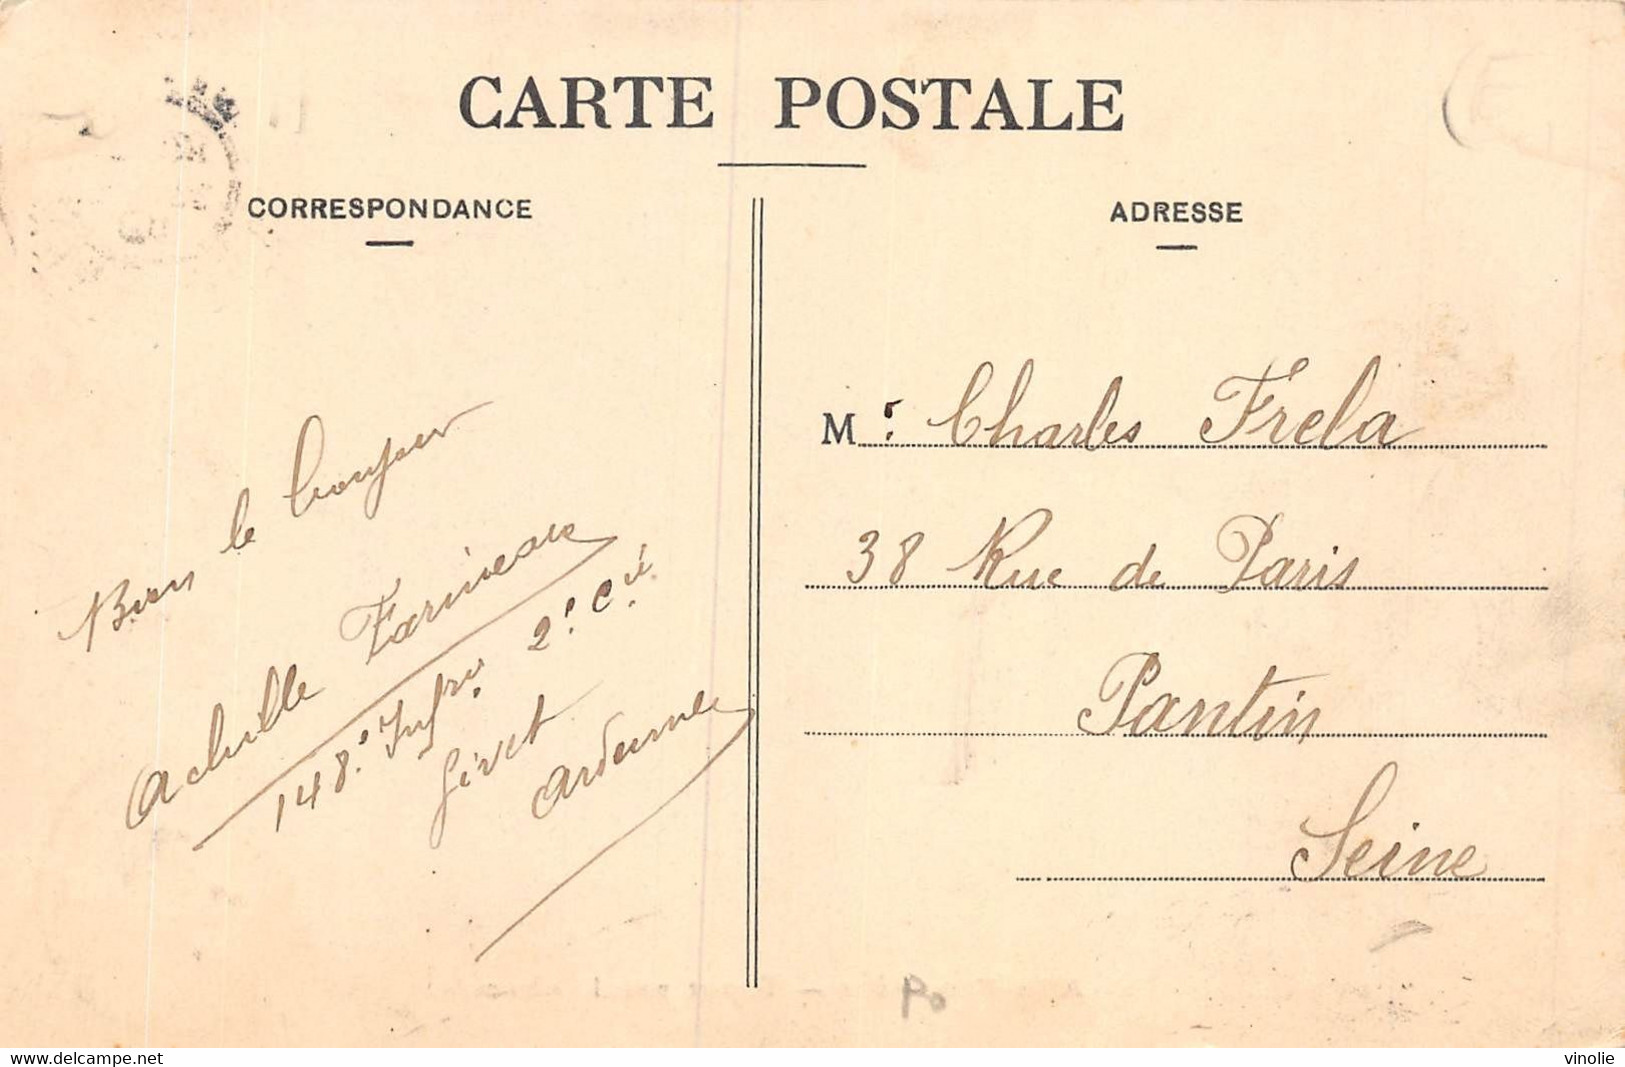 CARTE POSTALE
CORRESPONDANCE
Bien le bonjour
Achille Farineau
148e Infrie 2e Cie
Givet
Ardennes
ADRESSE
Mr Charles Frela
38 Rue de Paris
Pantin
Seine
Po
www.delcampe.net
vinolie